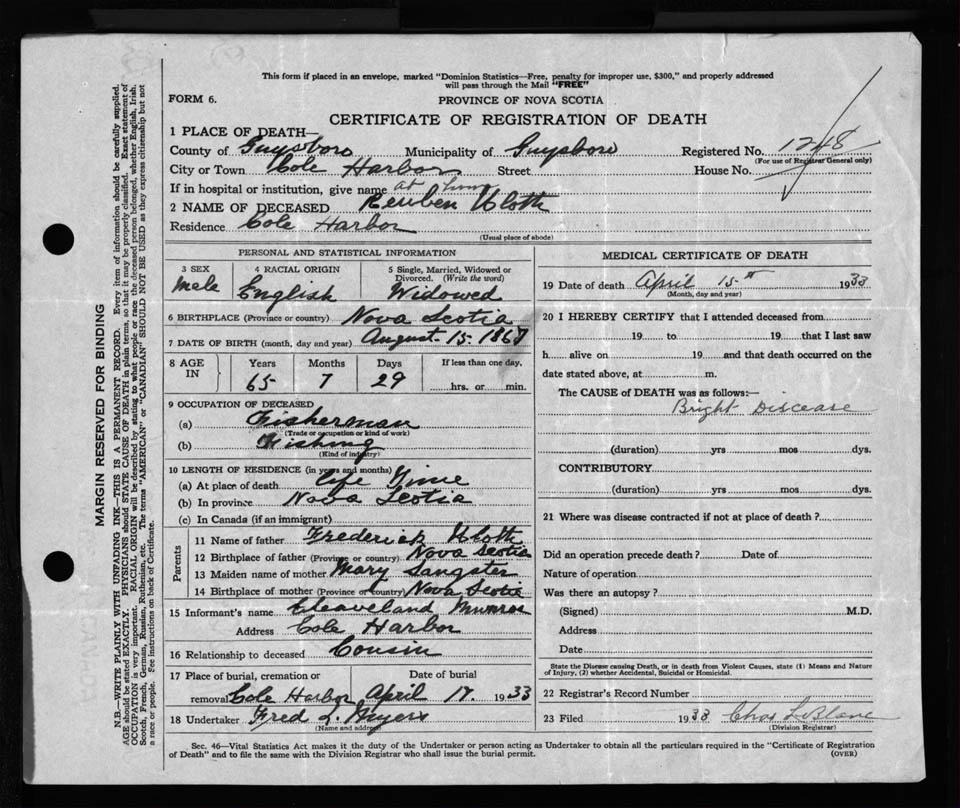 This form if placed in an envelope, marked "Dominion Statistics—Free, penalty for improper use, $300," and properly addressed
will pass through the Mail "FREE"
FORM 6.
PROVINCE OF NOVA SCOTIA
CERTIFICATE OF REGISTRATION OF DEATH
1 PLACE OF DEATH—
County of Guysboro Municipality of Guysboro Registered No. 1248
(For use of Registrar General only)
City or Town Cole Harbor Street House No.
If in hospital or institution, give name at
2 NAME OF DECEASED Reuben
Residence Cole Harbor
(Usual place of abode)
PERSONAL AND STATISTICAL INFORMATION
3 SEX 4 RACIAL ORIGIN 5 Single, Married, Widowed or
Divorced. (Write the word)
Male English Widowed
6 BIRTHPLACE (Province or country) Nova Scotia
7 DATE OF BIRTH (month, day and year) August 15. 1867
8 AGE IN Years Months Days If less than one day,
65 7 29 hrs. or min.
9 OCCUPATION OF DECEASED
(a) Fisherman
(Trade or occupation or kind of work)
(b) Fishing
(Kind of industry)
10 LENGTH OF RESIDENCE (in years and months)
(a) At place of death life Time
(b) In province Nova Scotia
(c) In Canada (if an immigrant)
Parents
11 Name of father Frederick
12 Birthplace of father (Province or country) Nova Scotia
13 Maiden name of mother Mary Sangster
14 Birthplace of mother (Province or country) Nova Scotia
15 Informant's name Cleaveland Munroe
Address Cole Harbor
16 Relationship to deceased Cousin
17 Place of burial, cremation or Date of burial
removal Cole Harbor April 17. 1933
18 Undertaker Fred L. Myers
(Name and address)
MEDICAL CERTIFICATE OF DEATH
19 Date of death April 15th 1933
(Month, day and year)
20 I HEREBY CERTIFY that I attended deceased from
19 to 19 that I last saw
h alive on 19 and that death occurred on the
date stated above, at m.
The CAUSE OF DEATH was as follows:—
Bright Discease
(duration) yrs mos dys.
CONTRIBUTORY
(duration) yrs mos dys.
21 Where was disease contracted if not at place of death?
Did an operation precede death? Date of
Nature of operation
Was there an autopsy?
(Signed) M.D.
Address
Date
State the Disease causing Death, or in death from Violent Causes, state (1) Means and Nature
of Injury, (2) whether Accidental, Suicidal or Homicidal.
22 Registrar's Record Number
23 Filed 1933 Chas LeBlanc
(Division Registrar)
Sec. 46—Vital Statistics Act makes it the duty of the Undertaker or person acting as Undertaker to obtain all the particulars required in the "Certificate of Registration
of Death" and to file the same with the Division Registrar who shall issue the burial permit. (OVER)
MARGIN RESERVED FOR BINDING
N.B.—WRITE PLAINLY WITH UNFADING INK—THIS IS A PERMANENT RECORD. Every item of information should be carefully supplied.
AGE should be stated EXACTLY. PHYSICIANS should STATE CAUSE OF DEATH in plain terms, so that it may be properly classified. Exact statement of
OCCUPATION is very important. RACIAL ORIGIN will be described by stating to what people or race the deceased person belonged, whether English, Irish,
Scotch, French, German, Russian, Ruthenian, etc. The terms "AMERICAN" or "CANADIAN" SHOULD NOT BE USED as they express citizenship but not
a race or people. See instructions on back of Certificate.